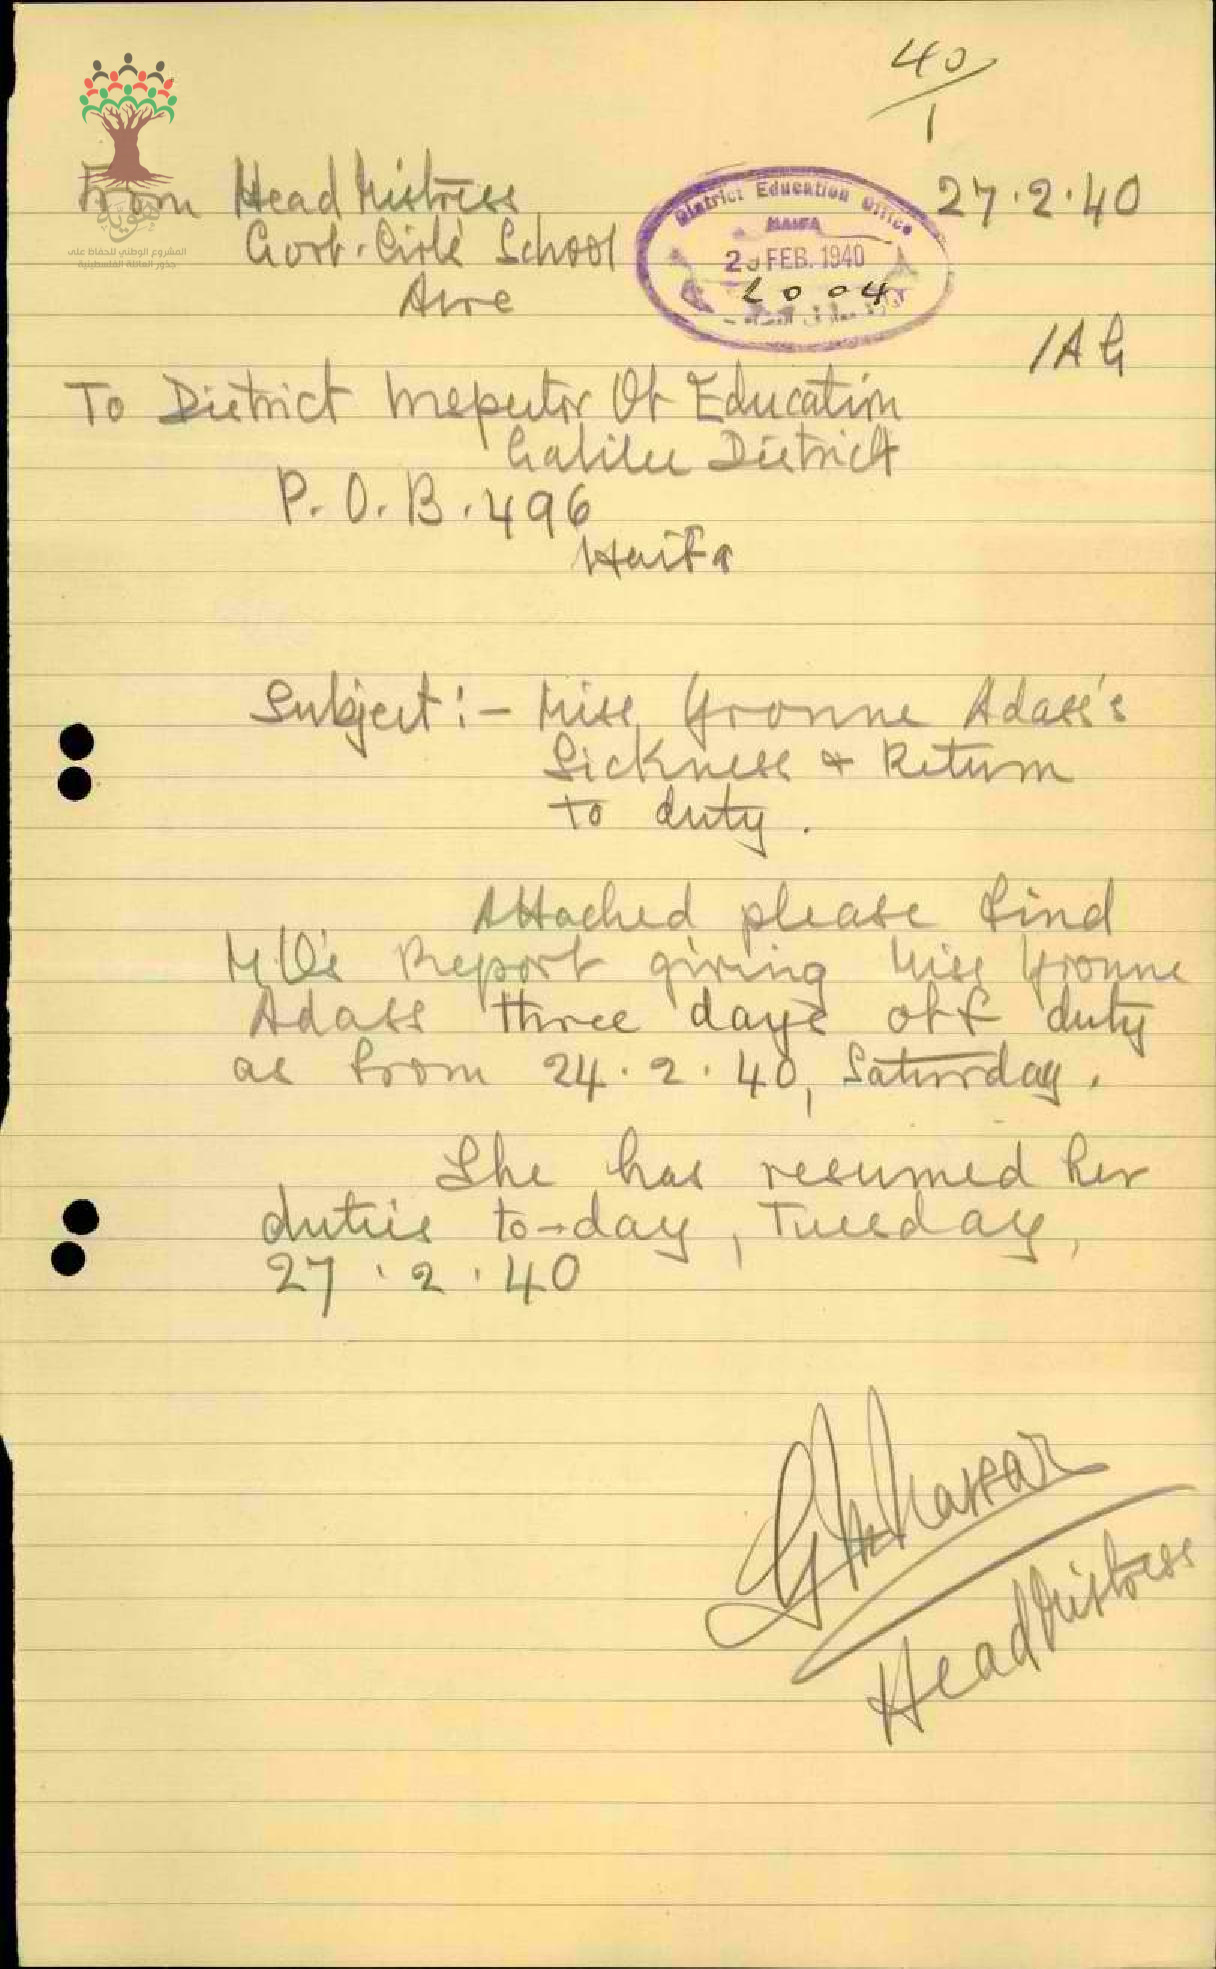 40/1
From Head Mistress
27.2.40
Govt. Girls' School
Acre
District Education Office
HAIFA
FEB. 1940
2004
هوية
المشروع الوطني للحفاظ على
جذور العائلة الفلسطينية
/AG
To District Inspector Of Education
Galilee District
P.O.B. 496
Haifa
Subject:- Miss Yvonne Adass's
Sickness & Return
to duty.
Attached please find
M.O's Report giving Miss Yvonne
Adass three days off duty
as from 24.2.40, Saturday.
She has resumed her
duties to-day, Tuesday,
27.2.40
Head Mistress